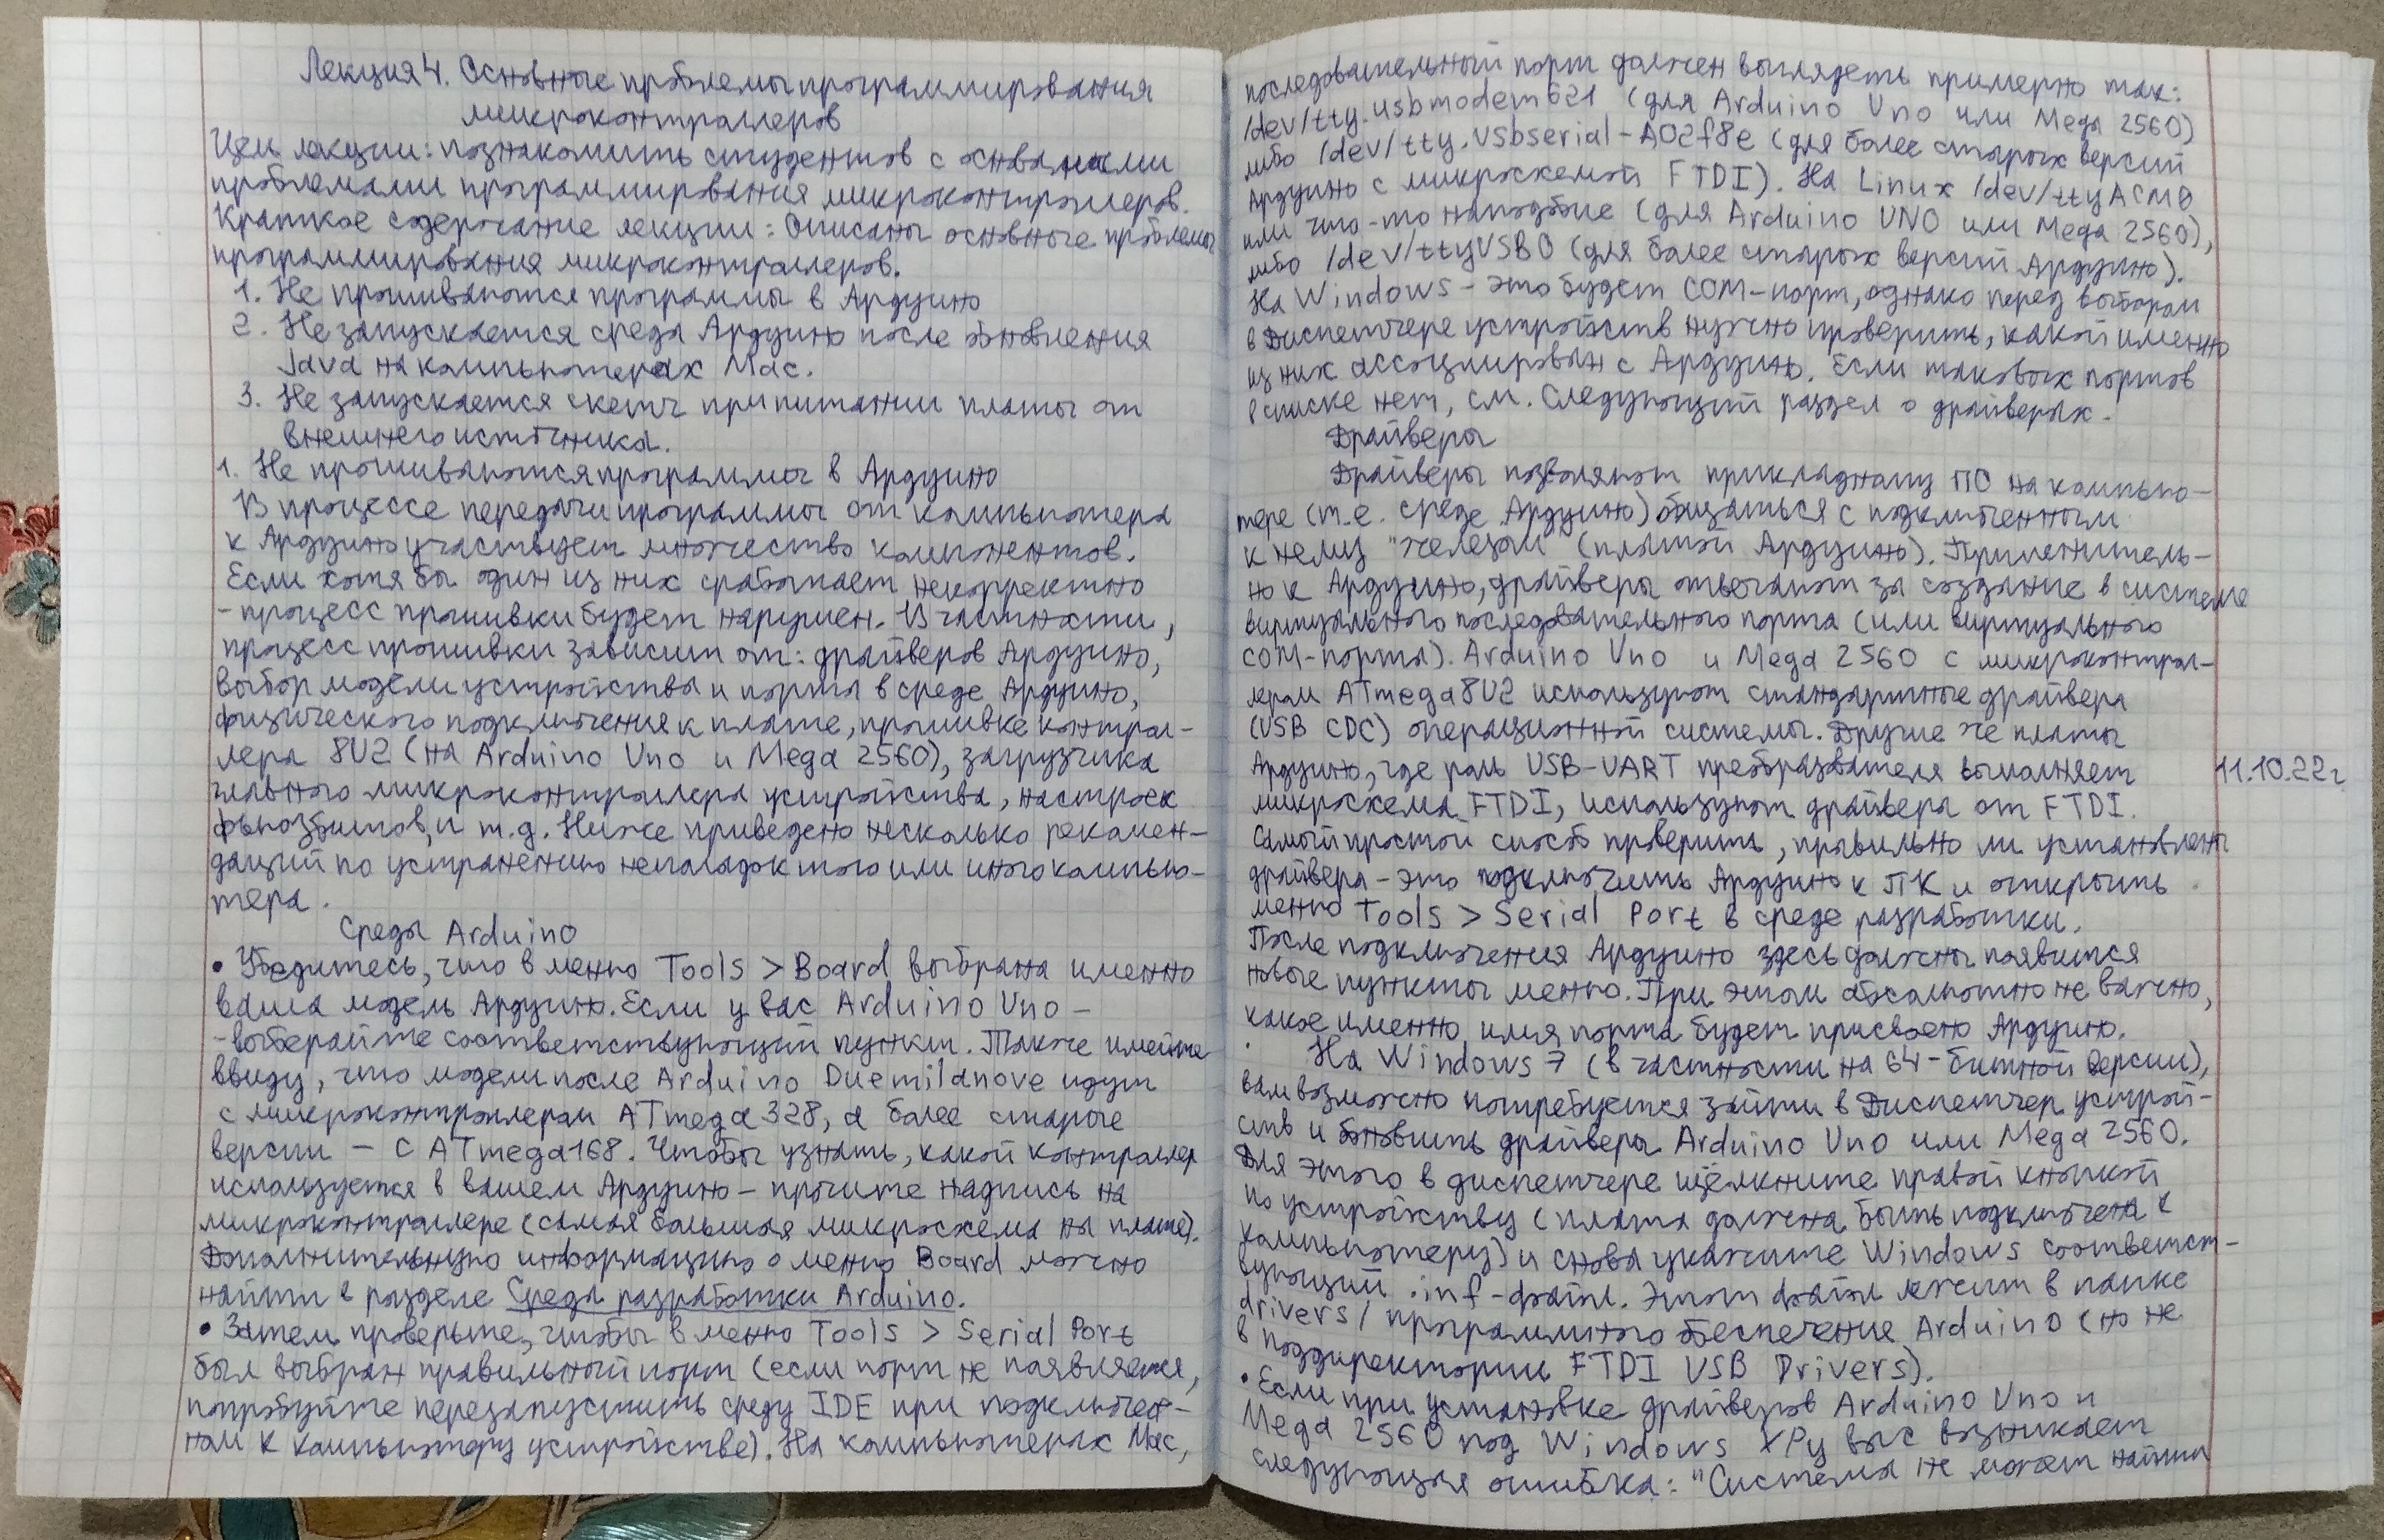 Лекция 4. Основные проблемы программирования
микроконтроллеров
Цели лекции: познакомить студентов с основными
проблемами программирования микроконтроллеров.
Краткое содержание лекции: Описаны основные проблемы
программирования микроконтроллеров.
1. Не прошиваются программы в Ардуино
2. Не запускается среда Ардуино после обновления
Java на компьютерах Mac.
3. Не запускается скетч при питании платы от
внешнего источника.
1. Не прошиваются программы в Ардуино
В процессе передачи программы от компьютера
к Ардуино участвует множество компонентов.
Если хотя бы один из них сработает некорректно
- процесс прошивки будет нарушен. В частности,
процесс прошивки зависит от: драйверов Ардуино,
выбор модели устройства и порта в среде Ардуино,
физического подключения к плате, прошивке контрол-
лера 8U2 (на Arduino Uno и Mega 2560), загрузчика
главного микроконтроллера устройства, настроек
фьюзбитов, и т.д. Ниже приведено несколько рекомен-
даций по устранению неполадок того или иного компью-
тера.
Среда Arduino
• Убедитесь, что в меню Tools > Board выбрана именно
ваша модель Ардуино. Если у вас Arduino Uno -
- выберайте соответствующий пункт. Также имейте
ввиду, что модели после Arduino Duemilanove идут
с микроконтроллером ATmega328, а более старые
версии - с ATmega168. Чтобы узнать, какой контроллер
используется в вашем Ардуино - прочите надпись на
микроконтроллере (самая большая микросхема на плате).
Дополнительную информацию о меню Board можно
найти в разделе Среда разработки Arduino.
• Затем проверьте, чтобы в меню Tools > Serial Port
был выбран правильный порт (если порт не появляется,
попробуйте перезапустить среду IDE при подключен-
ном к компьютеру устройстве). На компьютерах Mac,
последовательный порт должен выглядеть примерно так:
/dev/tty.usbmodem621 (для Arduino Uno или Mega 2560)
либо /dev/tty.USBserial-A02f8e (для более старых версий
Ардуино с микросхемой FTDI). На Linux /dev/ttyACM0
или что-то наподобие (для Arduino UNO или Mega 2560),
либо /dev/ttyUSB0 (для более старых версий Ардуино).
На Windows - это будет COM-порт, однако перед выбором
в Диспетчере устройств нужно проверить, какой именно
из них ассоциирован с Ардуино. Если таковых портов
в списке нет, см. Следующий раздел о драйверах.
Драйверы
Драйверы позволяют прикладному ПО на компью-
тере (т.е. среде Ардуино) общаться с подключенным
к нему "железом" (платой Ардуино). Применитель-
но к Ардуино, драйверы отвечают за создание в системе
виртуального последовательного порта (или виртуального
COM-порта). Arduino Uno и Mega 2560 с микроконтрол-
лером ATmega8U2 используют стандартные драйвера
(USB CDC) операционной системы. Другие же платы
Ардуино, где роль USB-UART преобразователя выполняет
11.10.22г
микросхема FTDI, используют драйвера от FTDI.
Самый простой способ проверить, правильно ли установлены
драйвера - это подключить Ардуино к ПК и открыть
меню Tools > Serial Port в среде разработки.
После подключения Ардуино здесь должны появится
новые пункты меню. При этом абсолютно не важно,
какое именно имя порта будет присвоено Ардуино.
На Windows 7 (в частности на 64-битной версии),
вам возможно потребуется зайти в Диспетчер устрой-
ств и обновить драйверы Arduino Uno или Mega 2560.
Для этого в диспетчере щёлкните правой кнопкой
по устройству (плата должна быть подключена к
компьютеру) и снова укажите Windows соответст-
вующий .inf-файл. Этот файл лежит в папке
drivers/ программного обеспечение Arduino (но не
в поддиректории FTDI USB Drivers).
• Если при установке драйверов Arduino Uno и
Mega 2560 под Windows XP у вас возникает
следующая ошибка: "Система не может найти